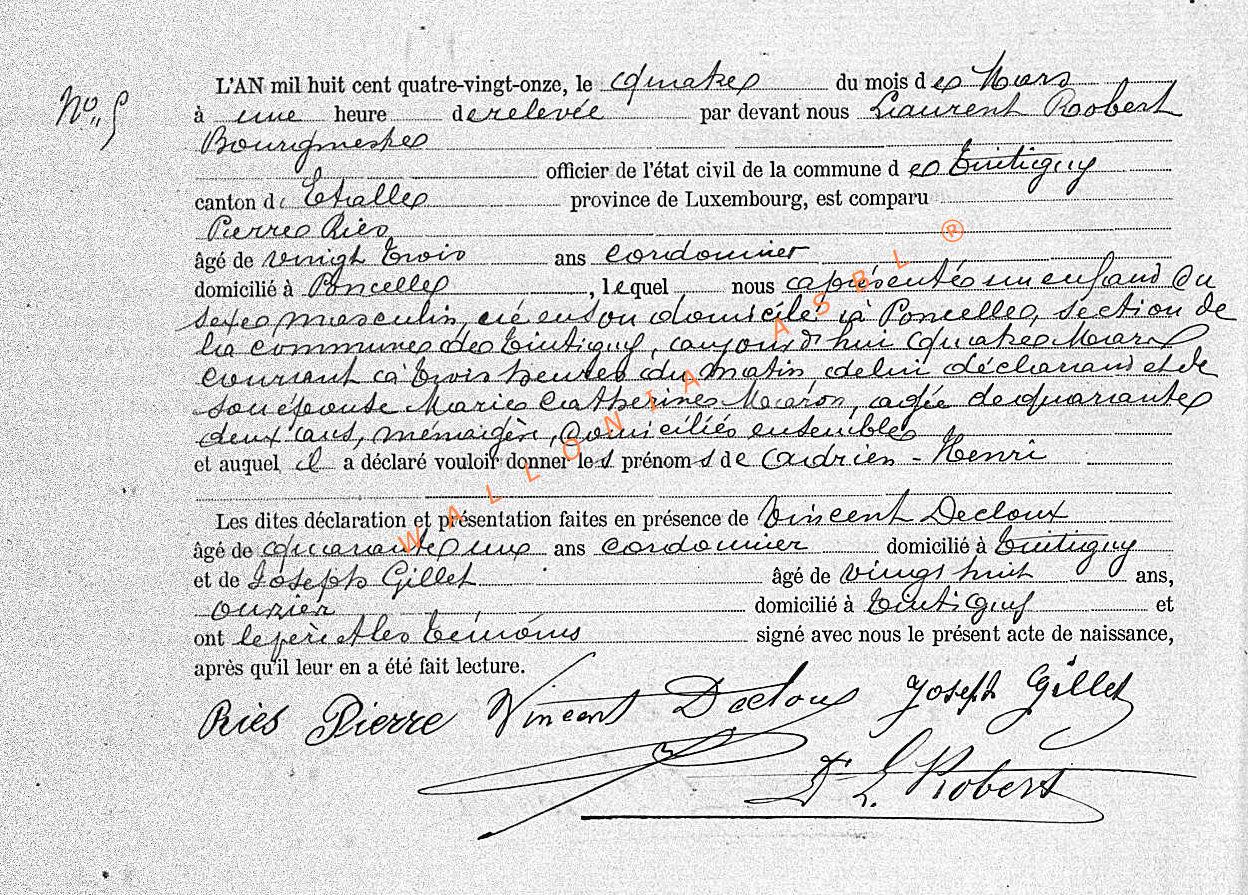 N° 5
L'AN mil huit cent quatre-vingt-onze, le quatre du mois de Mars
à une heure de relevée par devant nous Laurent Robert
Bourgmestre
officier de l'état civil de la commune de Tintigny
canton d' Etalle province de Luxembourg, est comparu
Pierre Ries
âgé de vingt trois ans cordonnier
domicilié à Poncelle, lequel nous a présenté un enfand du
sexe masculin, né en son domicile à Poncelle, section de
la commune de Tintigny, aujourd'hui quatre Mars
courant à trois heures du matin, de lui déclarand et de
son épouse Marie Catherine Maron, agée de quarante
deux ans, ménagère, domiciliés ensemble
et auquel il a déclaré vouloir donner les prénoms de Adrien - Henri
Les dites déclaration et présentation faites en présence de Vincent Decloux
âgé de quarante un ans cordonnier domicilié à Tintigny
et de Joseph Gillet âgé de vingt huit ans,
ouvrier domicilié à Tintigny et
ont le père et les témoins signé avec nous le présent acte de naissance,
après qu'il leur en a été fait lecture.
Ries Pierre Vincent Decloux Joseph Gillet
L. Robert
WALLONIA ASBL ®